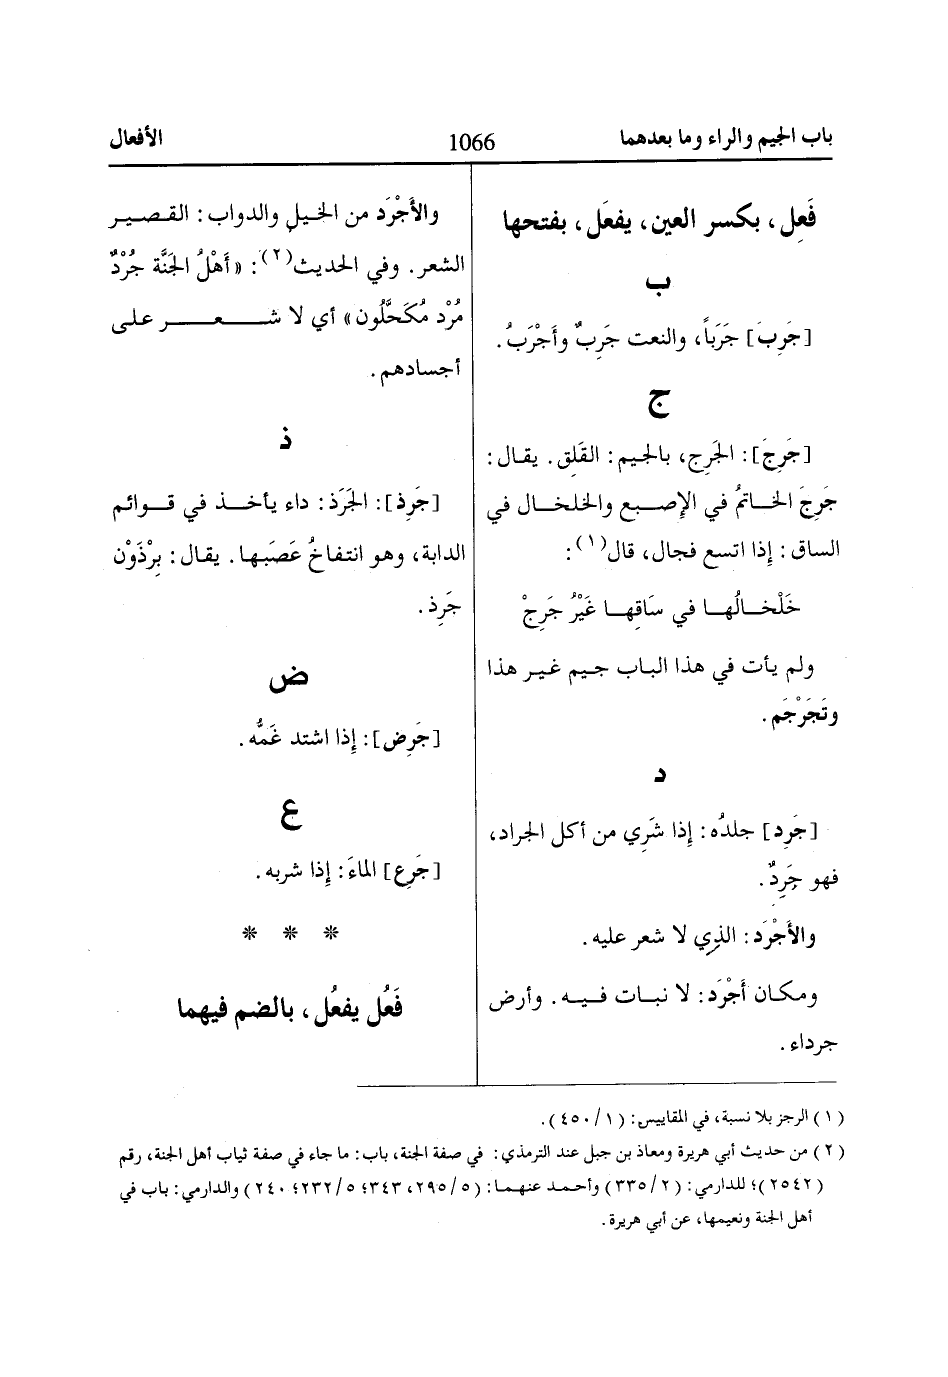 باب الجيم والراء وما بعدهما
1066
الأفعال
فَعِل، بكسر العين، يفعَل، بفتحها
ب
[جَرِبَ] جَرَباً، والنعت جَرِبٌ وأَجْرَبُ.
ج
[جَرِجَ]: الجَرج، بالجيم: القَلِق. يقال:
جَرِجَ الخاتمُ في الإصبع والخلخال في
الساق: إذا اتسع فجال، قال(١):
خَلْخالُها في سَاقِها غَيْرُ جَرِجْ
ولم يأت في هذا الباب جيم غير هذا
وتَجَرْجَم.
د
[جَرِد] جلدُه: إذا شَرِي من أكل الجراد،
فهو جَرِدٌ.
والأَجْرَد: الذي لا شعر عليه.
ومكان أَجْرَد: لا نبات فيه. وأرض
جرداء.
والأَجْرَد من الخيل والدواب: القصير
الشعر. وفي الحديث(٢): «أَهْلُ الجَنَّة جُرْدٌ
مُرْد مُكَحَّلُون» أي لا شعر على
أجسادهم.
ذ
[جَرِذ]: الجَرَذ: داء يأخذ في قوائم
الدابة، وهو انتفاخُ عَصَبها. يقال: بِرْذَوْن
جَرِذ.
ض
[جَرِض]: إذا اشتد غَمُّه.
ع
[جَرِع] الماءَ: إذا شربه.
* * *
فَعُل يفعُل، بالضم فيهما
(١) الرجز بلا نسبة، في المقاييس: (١/٤٥٠).
(٢) من حديث أبي هريرة ومعاذ بن جبل عند الترمذي: في صفة الجنة، باب: ما جاء في صفة ثياب أهل الجنة، رقم
(٢٥٤٢)؛ للدارمي: (٢/٣٣٥) وأحمد عنهما: (٥/٢٩٥، ٣٤٣؛ ٥/٢٣٢؛ ٢٤٠) والدارمي: باب في
أهل الجنة ونعيمها، عن أبي هريرة.